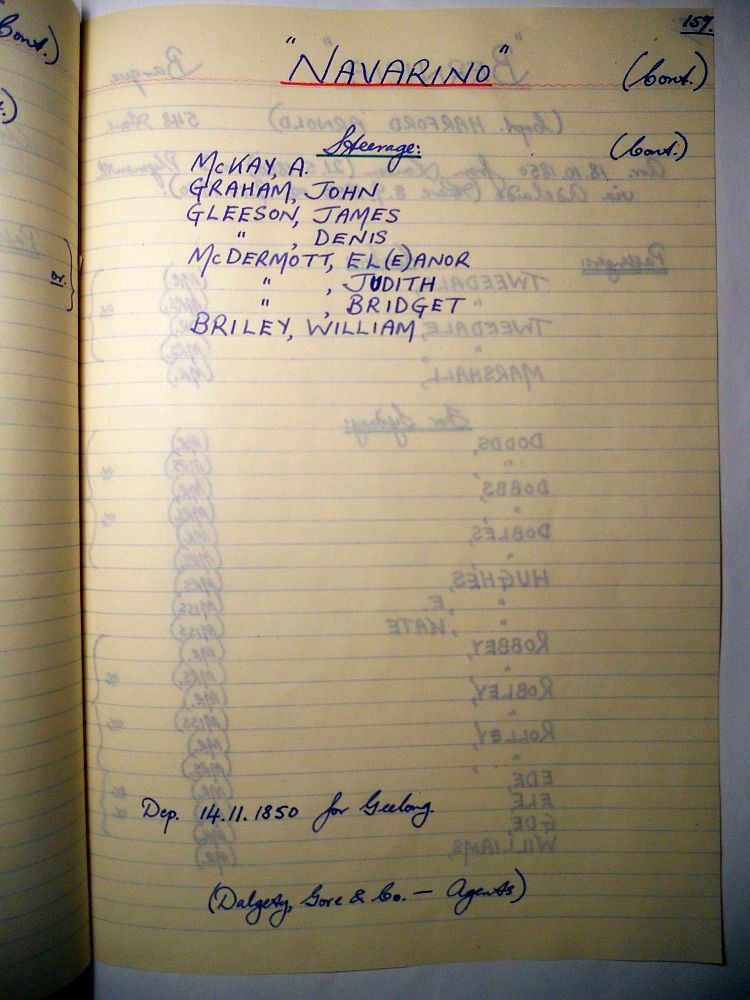 159.
"NAVARINO" (Cont.)
Steerage: (Cont.)
McKAY, A.
GRAHAM, JOHN
GLEESON, JAMES
" , DENIS
McDERMOTT, EL(E)ANOR
" , JUDITH
" , BRIDGET
BRILEY, WILLIAM
or.
Dep. 14.11.1850 for Geelong.
(Dalgety, Gore & Co. — Agents)